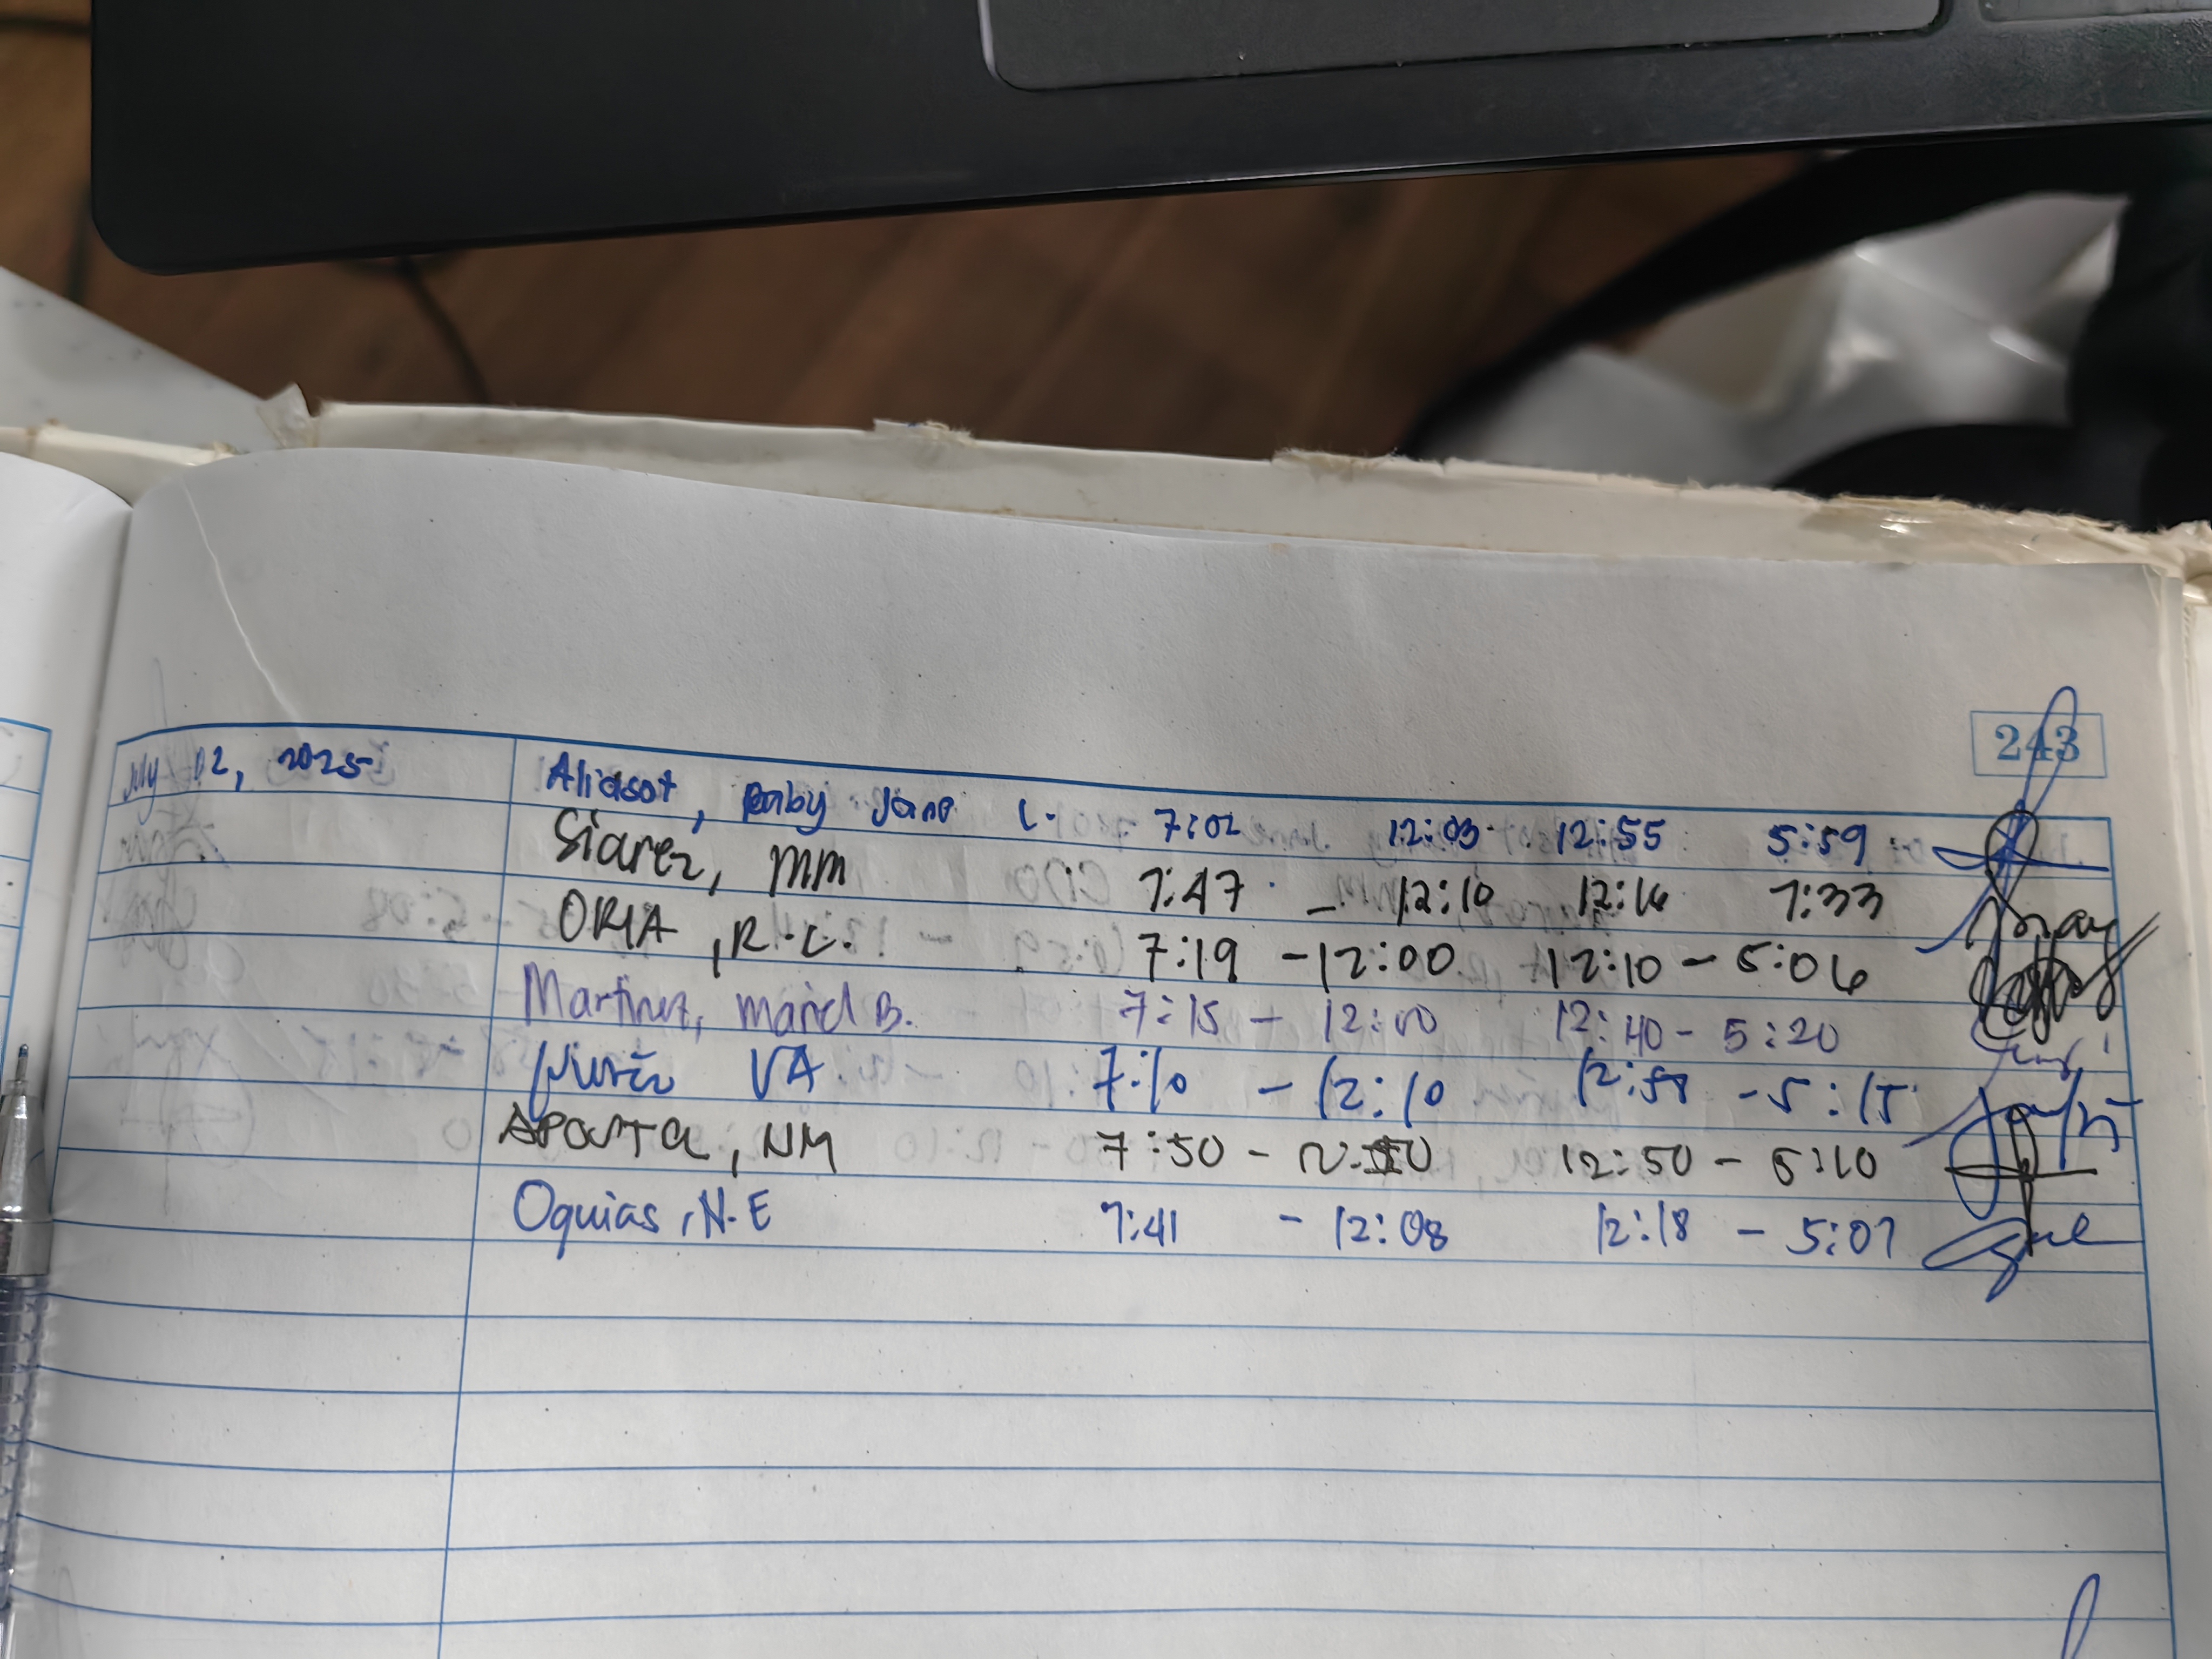 243
July 02, 2025 Aliasot, Baby Jane L. 7:02 12:03 12:55 5:59
Siarez, MM 7:47 - 12:10 12:16 7:33
ORIA, R.C. 7:19 - 12:00 12:10 - 5:06
Martinez, Maricl B. 7:15 - 12:00 12:40 - 5:20
VA 7:10 - 12:10 12:58 - 5:15
APOSTA, NM 7:50 - 12:50 - 5:10
Oquias, N.E 7:41 - 12:08 12:18 - 5:07